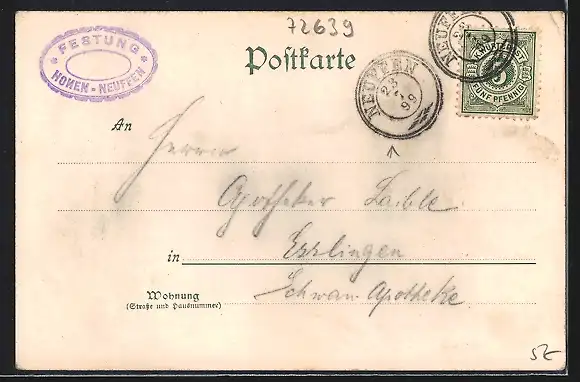 72639
FESTUNG
HOHEN-NEUFFEN
Postkarte
NEUFFEN
NEUFFEN
WÜRTTEMBERG
5
FÜNF PFENNIG
An
Herrn
Apotheker Laible
in Esslingen
Schwan Apotheke
Wohnung
(Straße und Hausnummer)